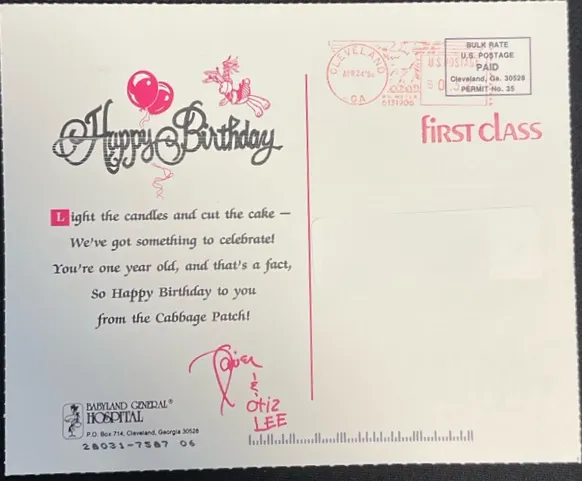 Happy Birthday
Light the candles and cut the cake —
We've got something to celebrate!
You're one year old, and that's a fact,
So Happy Birthday to you
from the Cabbage Patch!
Xavier
&
Otis
LEE
BABYLAND GENERAL®
HOSPITAL
P.O. Box 714, Cleveland, Georgia 30528
28031-7587 06
CLEVELAND
APR 24
GA
U.S. POSTAGE
BULK RATE
U.S. POSTAGE
PAID
Cleveland, Ga. 30528
PERMIT No. 35
first class